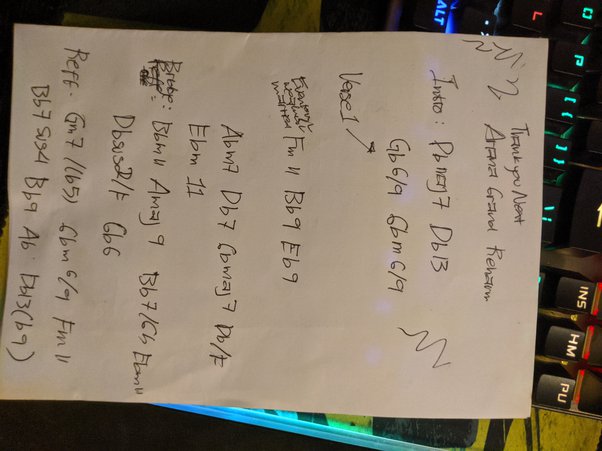 Thank you Next
Ariana Grand Reharm
Intro: Dbmaj7 Db13
Gb6/9 Gbm6/9
Verse 1
Fm11 Bb9 Eb9
Abm7 Db7 Gbmaj7 Db/F
Ebm 11
Bridge: Bbm11 Amaj9 Ebm11
Dbsus2/F Gb6
Reff: Gm7(b5) Gbm6/9 Fm11
Bb7sus4 Bb9 Ab Db13(b9)
ALT
L
INS
HM
PU